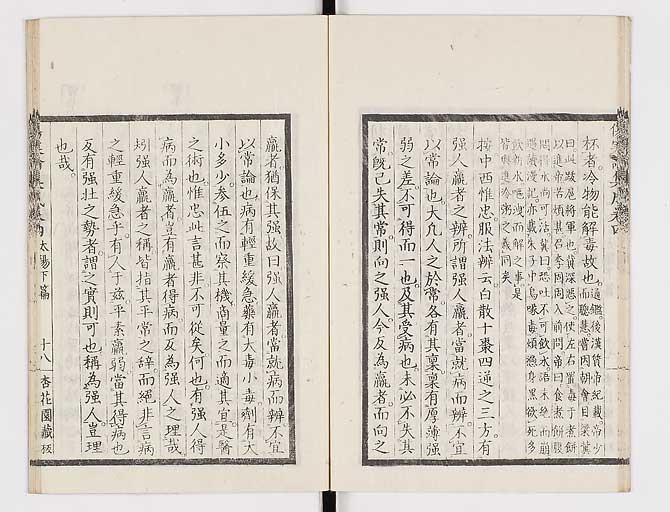 杯者冷物能解毒故也
按中西惟忠服法辨云白散十棗四逆之三方有
強人羸者之辨所謂強人羸者當就病而辨不宜
以常論也大凡人之於常各有其稟稟有厚薄強
弱之差不可得而一也及其受病也未必不失其
常既已失其常則向之強人今反為羸者而向之
羸者猶保其強故曰強人羸者當就病而辨不宜
以常論也病有輕重緩急藥有大毒小毒劑有大
小多少參伍之而察其機商量之而適其宜是醫
之術也惟忠此言甚非不可從矣何也有強人得
病而為羸者豈有羸者得病而反為強人之理哉
強人羸者之稱皆指其平常之辭而絕非言病
之輕重緩急乎有人于茲平素羸弱當其得病也
反有強壯之勢者謂之實則可也稱為強人豈理
也哉
太陽下篇
十八
杏花園藏板